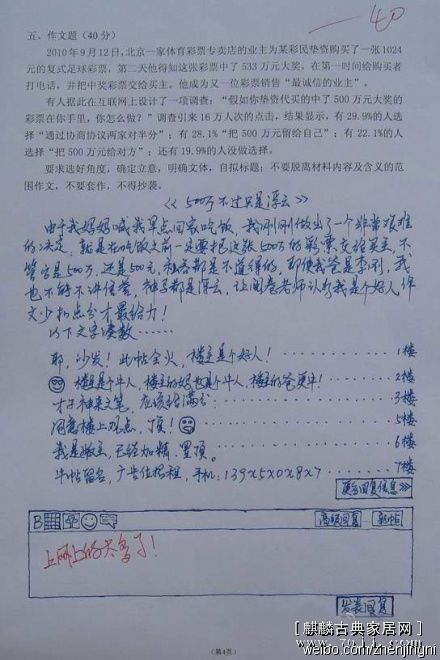 —40
五、作文题（40分）
2010年9月12日,北京一家体育彩票专卖店的业主为某彩民垫资购买了一张1024
元的复式足球彩票，第二天他得知这张彩票中了533万元大奖，在第一时间给购买者
打电话，并把中奖彩票交给买主。他成为又一位彩票销售“最诚信的业主”。
有人据此在互联网上设计了一项调查：“假如你垫资代买的中了500万元大奖的
彩票在你手里，你怎么做？”调查引来16万人次的点击，结果显示，有29.9%的人选
择“通过协商协议两家对半分”；有28.1%“把500万元留给自己”；有22.1%的人
选择“把500万元给对方”；还有19.9%的人没做选择。
要求选好角度，确定立意，明确文体，自拟标题；不要脱离材料内容及含义的范
围作文，不要套作，不得抄袭。
《500万不过只是浮云》
由于我妈妈喊我早点回家吃饭，我刚刚做出了一个非常艰难
的决定，就是在吃饭之前一定要把这张500万的彩票交给买主，不
管它是500万，还是500元，独吞都是不道德的，即使我爸是李刚，我
也不能不讲信誉，神马都是浮云，让阅卷老师认为我是个好人作
文少扣点分才最给力！
以下文字凑数……
耶，沙发！此帖会火，楼主是个好人！…………1楼
楼主是个牛人，楼主的妈也是个牛人，楼主的爸更牛！……2楼
才子神来之笔，应该给满分…………3楼
同意楼上观点，顶！…………5楼
我是版主，已经加精、置顶。…………6楼
牛帖留名，广告位招租，手机：139x5x0x8x7…………7楼
更多回复信息>>
B
高级回复 新帖
上网上的太多了！
发表回复
（第4页）
[麒麟古典家居网]
www.7ojj.com
weibo.com/zhenjingni